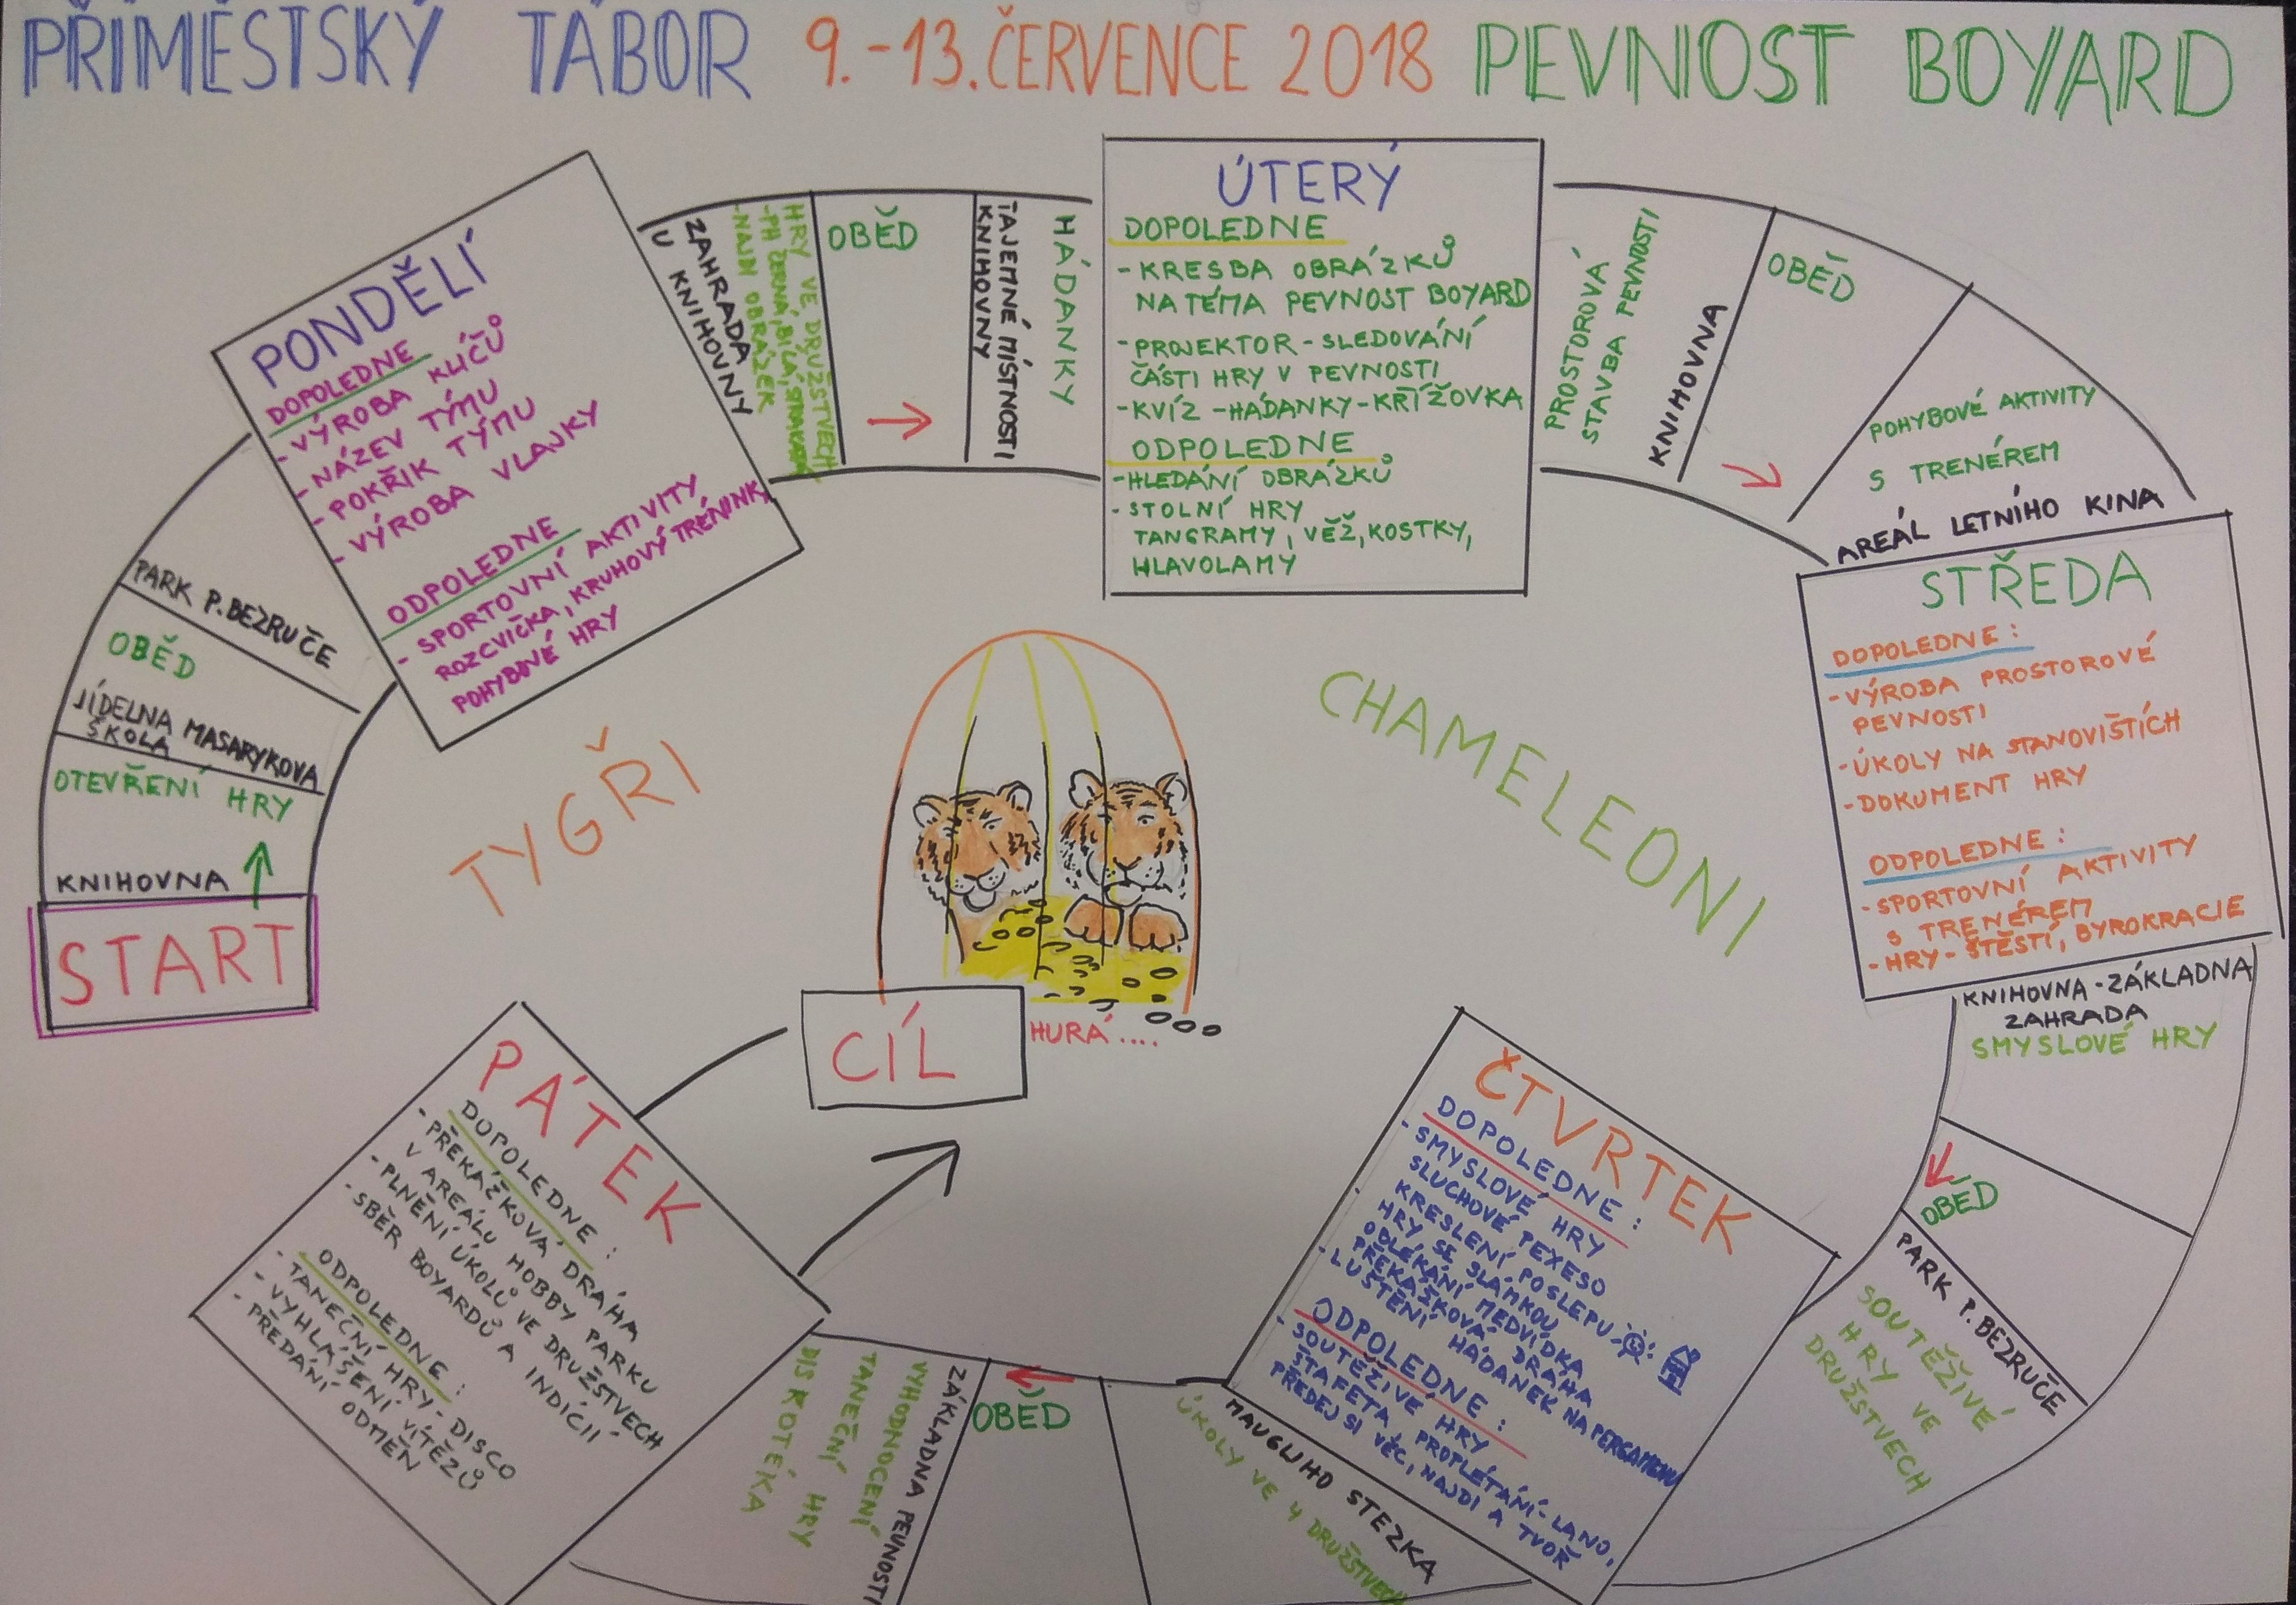 PŘÍMĚSTSKÝ TÁBOR 9.-13. ČERVENCE 2018 PEVNOST BOYARD
START
KNIHOVNA
OTEVŘENÍ HRY
JÍDELNA MASARYKOVA
ŠKOLA
OBĚD
PARK P. BEZRUČE
PONDĚLÍ
DOPOLEDNE
-VÝROBA KLÍČŮ
-NÁZEV TÝMU
-POKŘIK TÝMU
-VÝROBA VLAJKY
ODPOLEDNE
-SPORTOVNÍ AKTIVITY
ROZCVIČKA, KRUHOVÝ TRÉNINK,
POHYBOVÉ HRY
ZAHRADA
U KNIHOVNY
HRY VE DRUŽSTVECH
-NAJDI OBRÁZEK
OBĚD
TAJEMNÉ MÍSTNOSTI
KNIHOVNY
HÁDANKY
ÚTERÝ
DOPOLEDNE
-KRESBA OBRÁZKŮ
NA TÉMA PEVNOST BOYARD
-PROJEKTOR-SLEDOVÁNÍ
ČÁSTI HRY V PEVNOSTI
-KVÍZ -HÁDANKY-KŘÍŽOVKA
ODPOLEDNE
-HLEDÁNÍ OBRÁZKŮ
-STOLNÍ HRY
TANGRAMY, VĚŽ, KOSTKY,
HLAVOLAMY
PROSTOROVÁ
STAVBA PEVNOSTI
KNIHOVNA
OBĚD
POHYBOVÉ AKTIVITY
S TRENÉREM
AREÁL LETNÍHO KINA
STŘEDA
DOPOLEDNE:
-VÝROBA PROSTOROVÉ
PEVNOSTI
-ÚKOLY NA STANOVIŠTÍCH
-DOKUMENT HRY
ODPOLEDNE:
-SPORTOVNÍ AKTIVITY
S TRENÉREM
-HRY-ŠTĚSTÍ, BYROKRACIE
KNIHOVNA-ZÁKLADNA
ZAHRADA
SMYSLOVÉ HRY
OBĚD
PARK P. BEZRUČE
SOUTĚŽIVÉ
HRY VE
DRUŽSTVECH
ČTVRTEK
DOPOLEDNE:
-SMYSLOVÉ HRY
SLUCHOVÉ PEXESO
KRESLENÍ POSLEPU
HRY SE SLÁMKOU
ODLÉKÁNÍ MEDVÍDKA
PŘEKÁŠKOVÁ DRÁHA
-LUŠTĚNÍ HÁDANEK NA PERGAMENU
ODPOLEDNE:
-SOUTĚŽIVÉ HRY
ŠTAFETA, PROPLÉTÁNÍ-LANO,
PŘEDEJ SI VĚC, NAJDI A TVOŘ
MAUGLIHO STEZKA
ÚKOLY VE 4 DRUŽSTVECH
OBĚD
ZÁKLADNA PEVNOSTI
VYHODNOCENÍ
TANEČNÍ HRY
DISKOTÉKA
PÁTEK
DOPOLEDNE:
-PŘEKÁŽKOVÁ DRÁHA
V AREÁLU HOBBY PARKU
-PLNĚNÍ ÚKOLŮ VE DRUŽSTVECH
-SBĚR BOYARDŮ A INDICIÍ
ODPOLEDNE:
-TANEČNÍ HRY-DISCO
-VYHLÁŠENÍ VÍTĚZŮ
-PŘEDÁNÍ ODMĚN
CÍL
HURÁ....
TYGŘI
CHAMELEONI